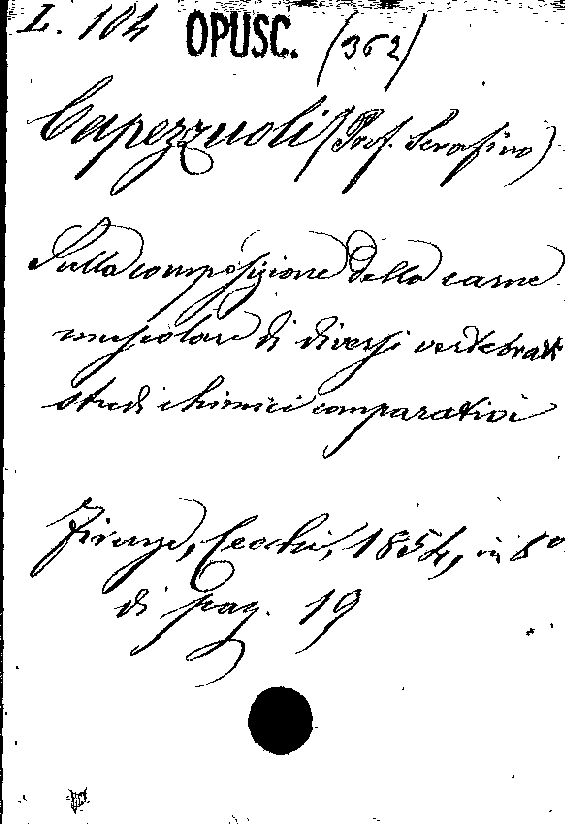 L. 104 OPUSC. (362)
Capezzuoli (Prof. Serafino)
Sulla composizione della carne
muscolare di diversi vertebrati
studi chimici comparativi
Firenze, Cecchi, 1854, in 8º
di pag. 19